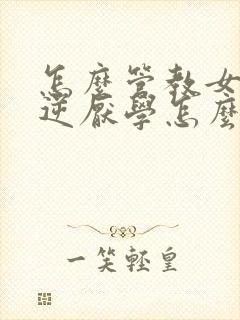 怎麼管教女
逆厭學怎麼
一笑輕皇